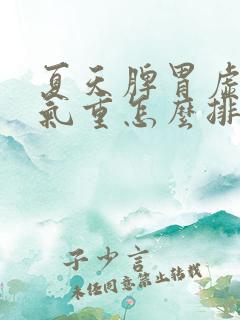 夏天脾胃虚
氣重怎麼排
子少言
未经同意禁止转载